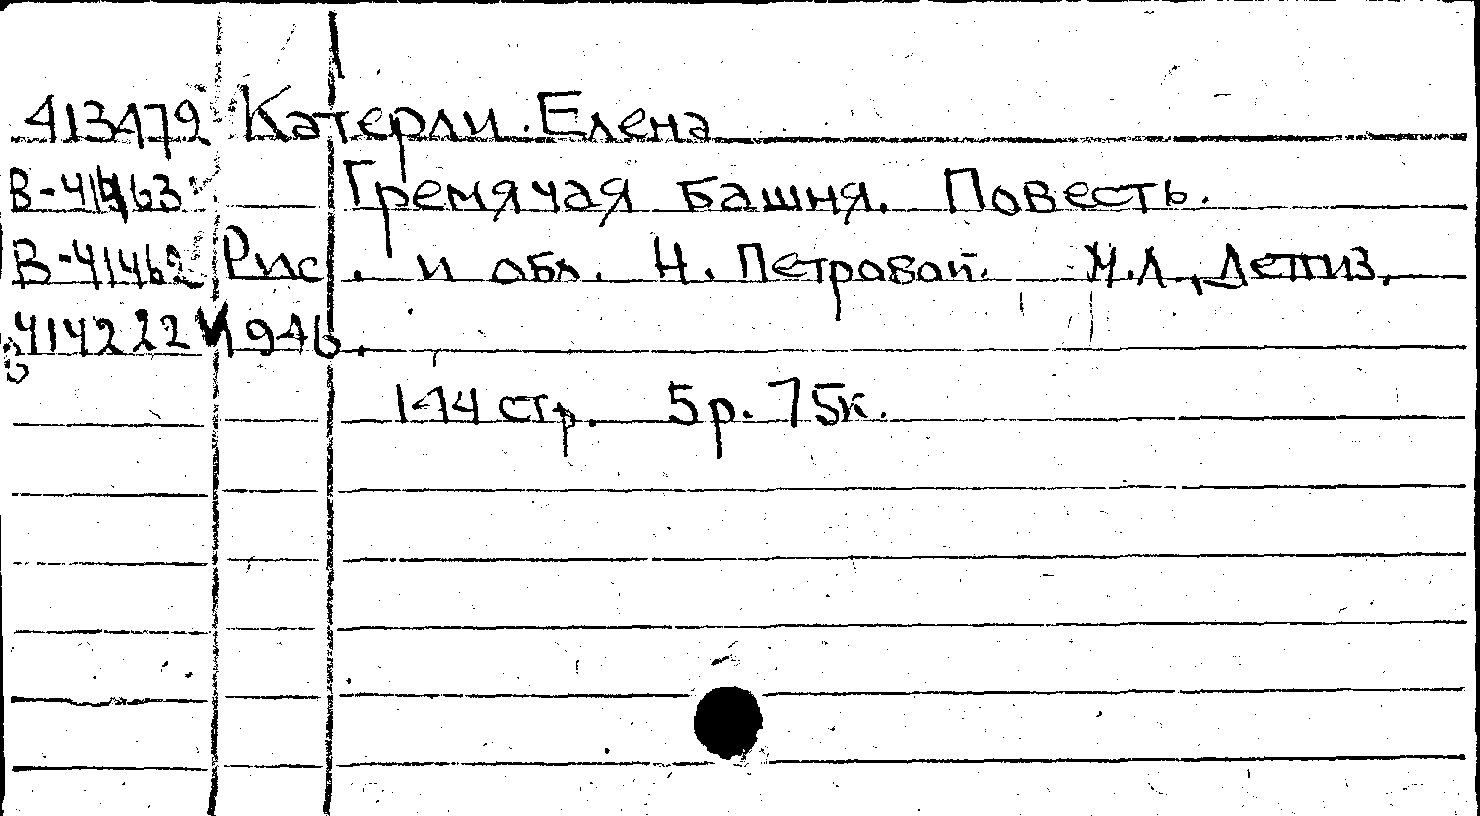 413479 Катерли Елена
В-41463 Гремячая башня. Повесть.
В-41462 Рис. и обл. Н. Петровой. М.Л., Детгиз,
414222 1946.
144 стр. 5р. 75к.